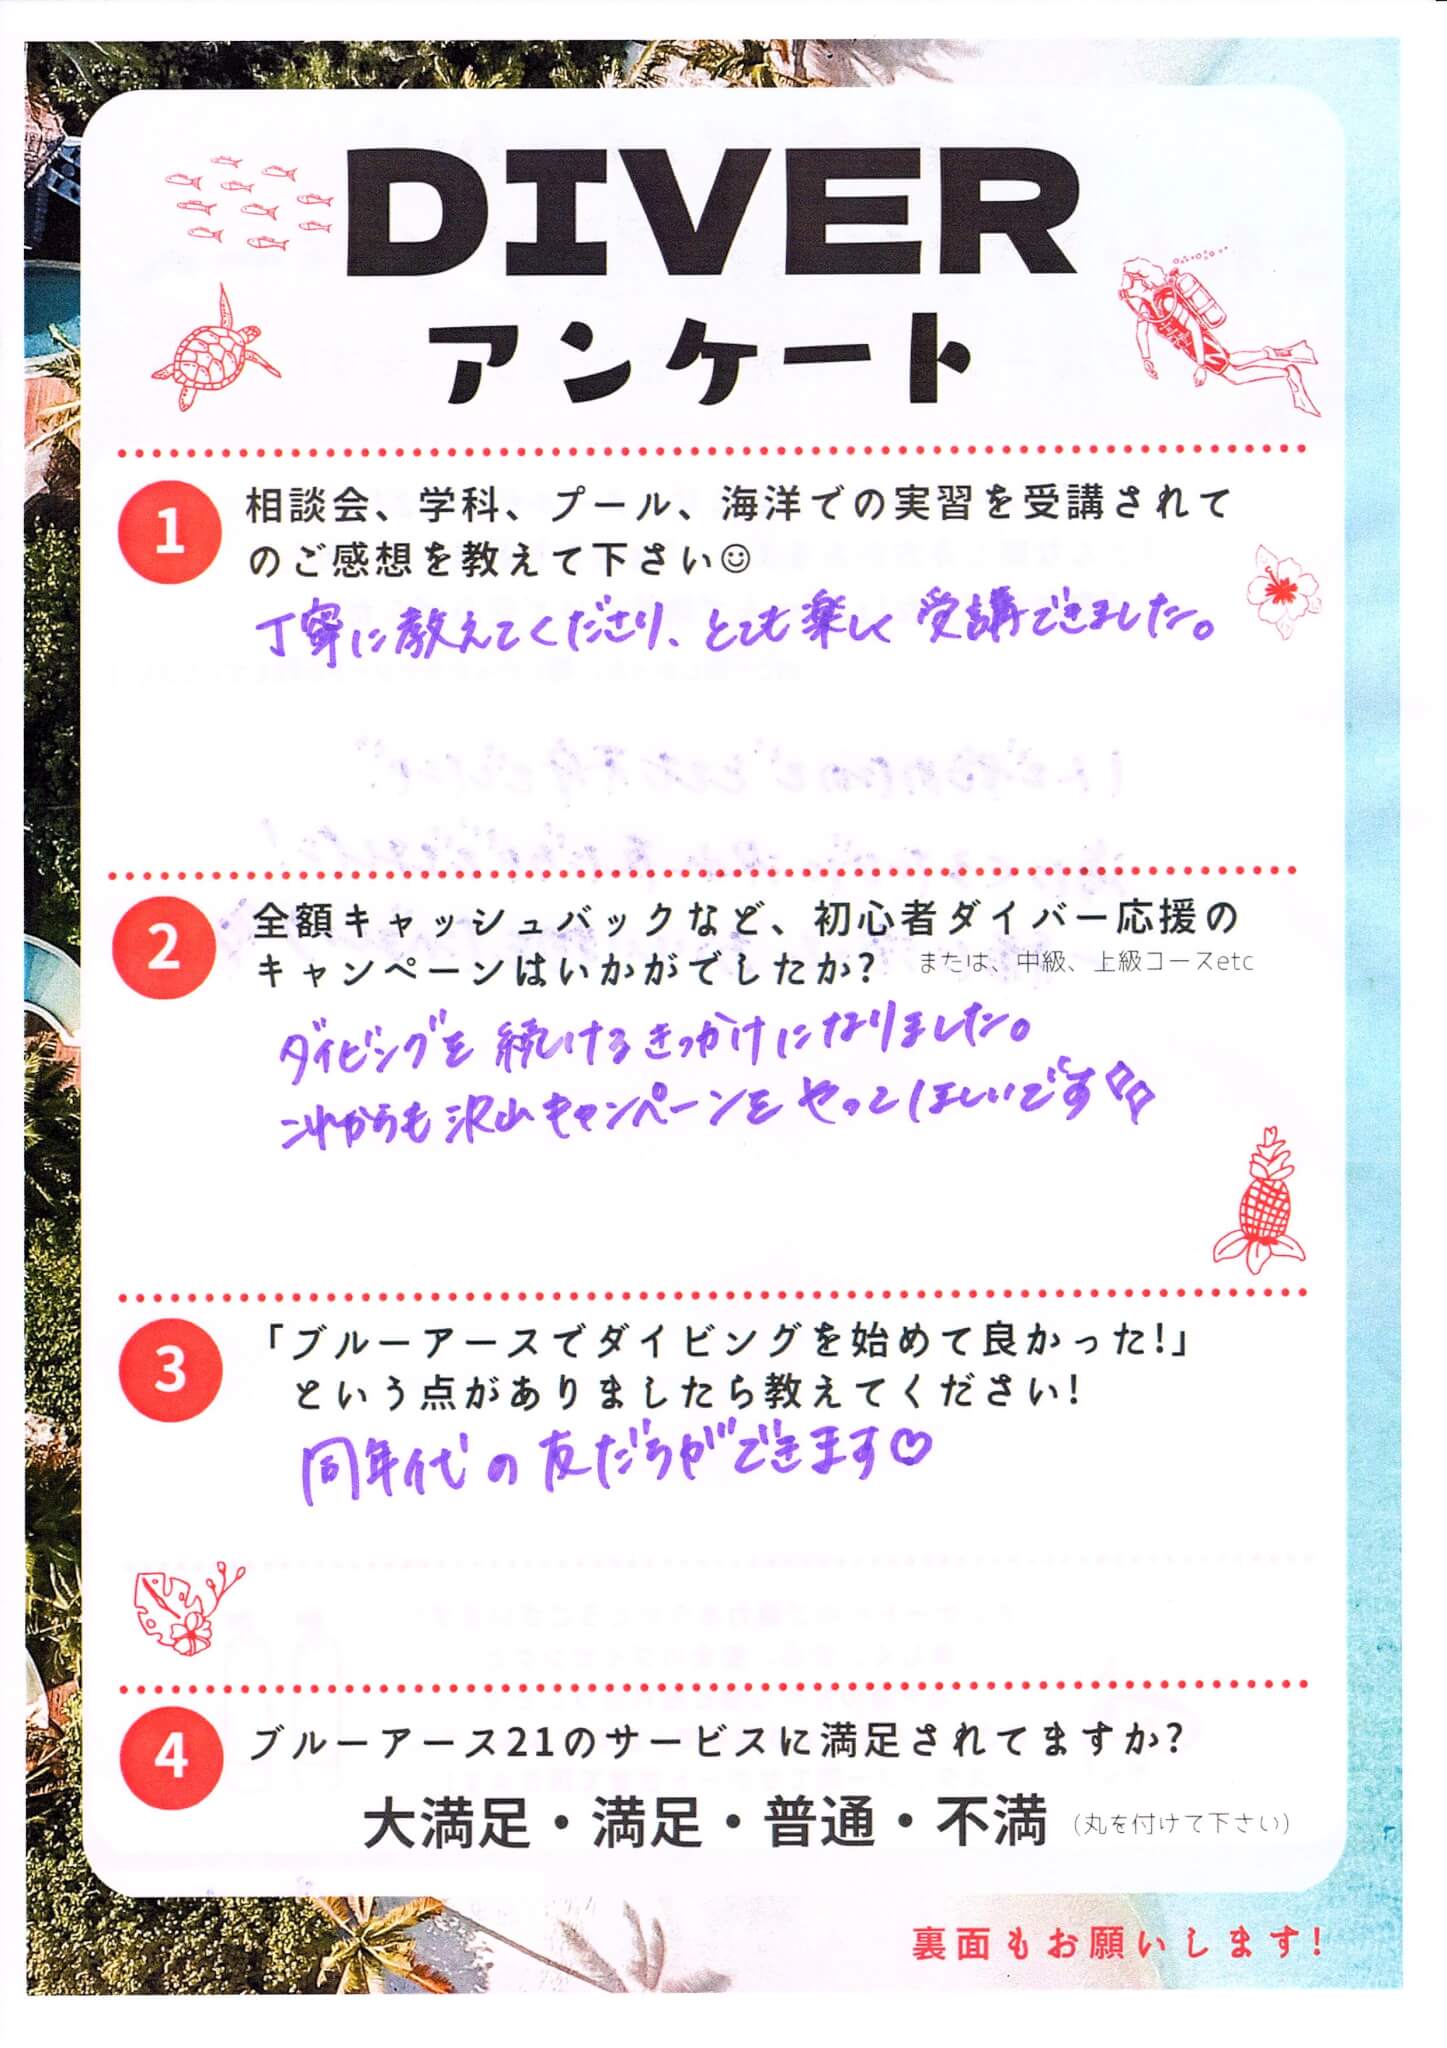 DIVER
アンケート
1
相談会、学科、プール、海洋での実習を受講されて
のご感想を教えて下さい☺
丁寧に教えてくださり、とても楽しく受講できました。
2
全額キャッシュバックなど、初心者ダイバー応援の
キャンペーンはいかがでしたか? または、中級、上級コースetc
ダイビングを続けるきっかけになりました。
これからも沢山キャンペーンをやってほしいです
3
「ブルーアースでダイビングを始めて良かった!」
という点がありましたら教えてください!
同年代の友だちができます♡
4
ブルーアース21のサービスに満足されてますか?
大満足・満足・普通・不満 (丸を付けて下さい)
裏面もお願いします!